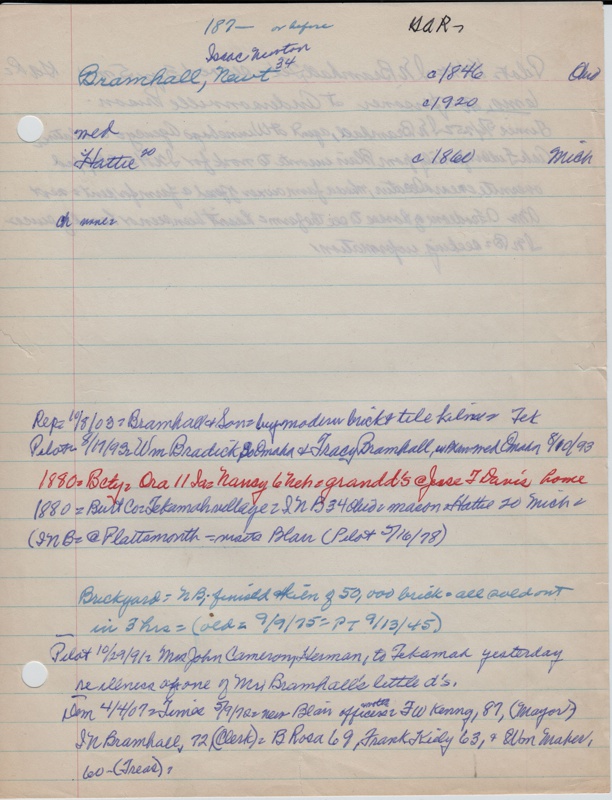 187— or before GAR-
Isaac Newton
Bramhall, Newt 34 c1846 Ohio
c1920
med
Hattie 20 c 1860 Mich
ch none=
Rep= 10/8/03= Bramhall & Son= buy modern brick & tile kilns= Tek
Pilot= 8/17/93= Wm Bradick, So Omaha & Tracy Bramhall, Omaha 8/10/93
1880= Bcty= Ora 11 Ia= Nancy 6 Neb= grandd's @ Jesse T Davis home
1880= Burt Co= Tekamah village= I N B 34 Ohio= mason= Hattie 20 Mich=
(I N B= @ Plattsmouth= visits Blair (Pilot 5/16/78)
Brickyard= NB; finished kiln of 50,000 brick= all sold out
in 3 hrs= (old= 9/9/75= PT 9/13/45)
Pilot 10/29/91= Mrs John Cameron, Herman, to Tekamah yesterday
re illness of one of Mrs Bramhall's little d's.
Dem 4/4/07= Times 5/9/72= new Blair officers= F W Kenny, 87, (Mayor)
I N Bramhall, 72 (Clerk)= B Rosa 69, Frank Kidy 63, & Wm Maher,
60- (Treas)=